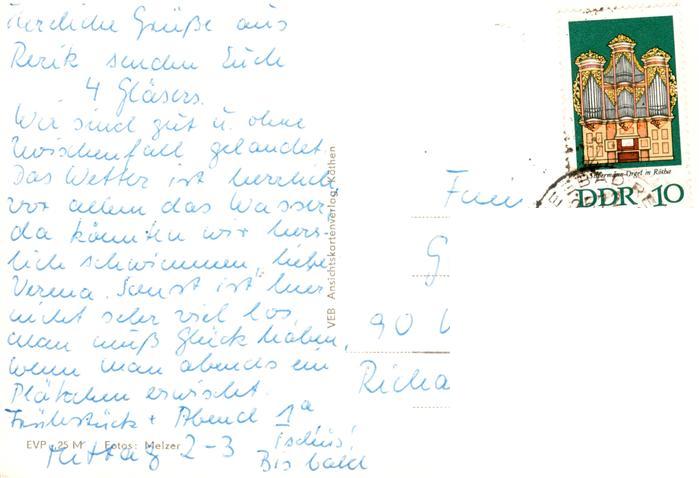 Herzliche Grüße aus
Rerik senden Euch
4 Gläsers.
Wir sind gut u. ohne
Zwischenfall gelandet.
Das Wetter ist herrlich,
vor allem das Wasser,
da könnten wir herr-
lich schwimmen, liebe
Verena. Sonst ist hier
nicht sehr viel los,
man muß Glück haben,
wenn man abends ein
Plätzchen erwischt.
Frühstück + Abend 1a
Mittag 2-3 Tschüs!
Bis bald
EVP -,25 M Fotos: Melzer
VEB Ansichtskartenverlag Köthen
Silbermann-Orgel in Rötha
DDR 10
G
90
Richa